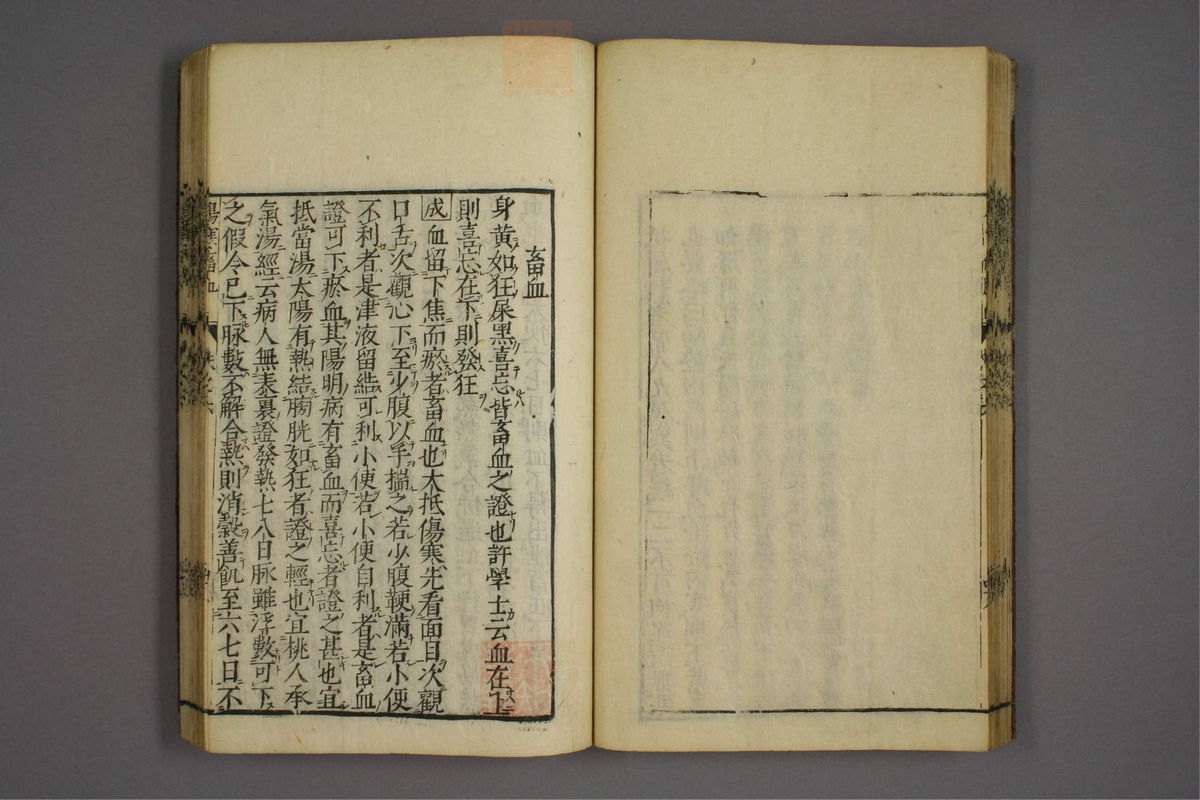 畜血
身黄如狂屎黒喜忘皆畜血之證也許學士云血在上
則喜忘在下則發狂
成血留下焦而瘀者畜血也大抵傷寒先看面目次觀
口舌次觀心下至少腹以手揣之若少腹鞕滿若小便
不利者是津液留結可利小便若小便自利者是畜血
證可下瘀血其陽明病有畜血而喜忘者證之甚也宜
抵當湯太陽有熱結膀胱如狂者證之輕也宜桃人承
氣湯經云病人無表裏證發熱七八日脉雖浮數可下
之假令已下脉數不解合熱則消穀善飢至六七日不